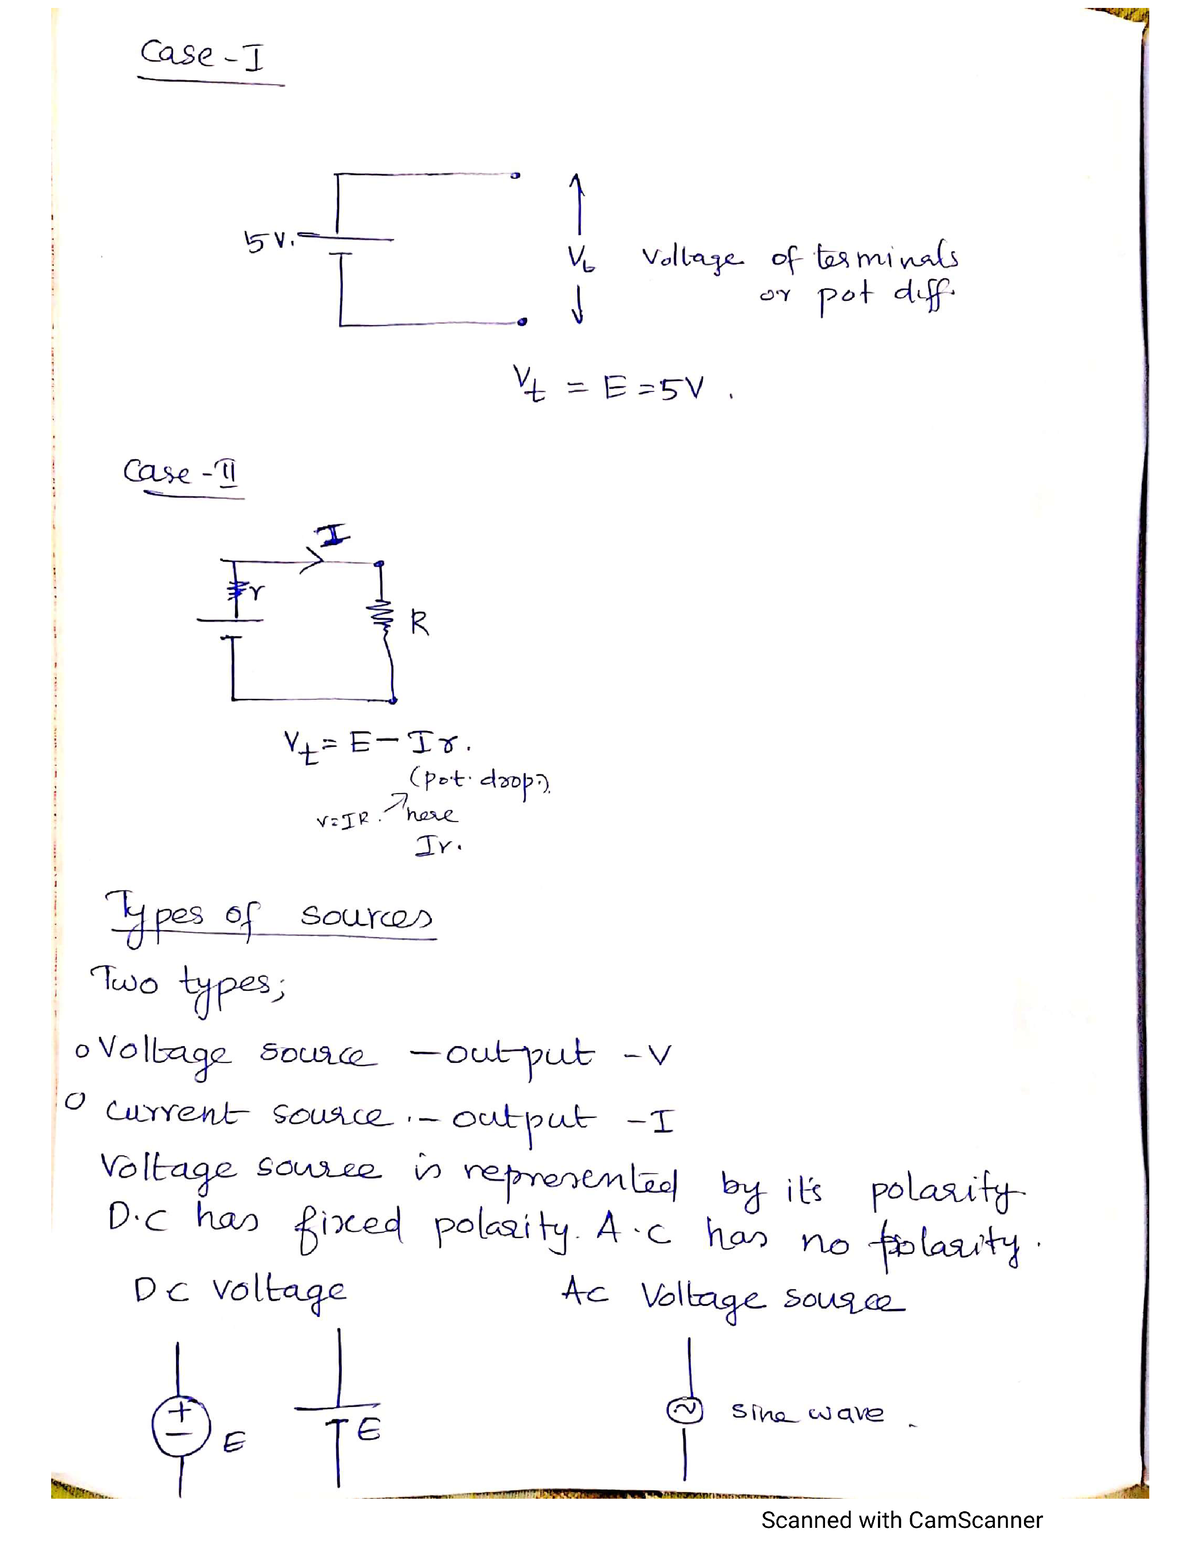 Case - I
5V.
Vt
Voltage of terminals
or pot diff.
Vt = E = 5V .
Case - II
I
r
R
Vt = E - Ir.
(pot. drop).
V=IR. here
Ir.
Types of sources
Two types;
o Voltage source - output - V
o current source .- output - I
Voltage source is represented by it's polarity
D.C has fixed polarity. A.C has no polarity.
DC voltage
AC Voltage source
+
-
E
E
~
sine wave .
Scanned with CamScanner